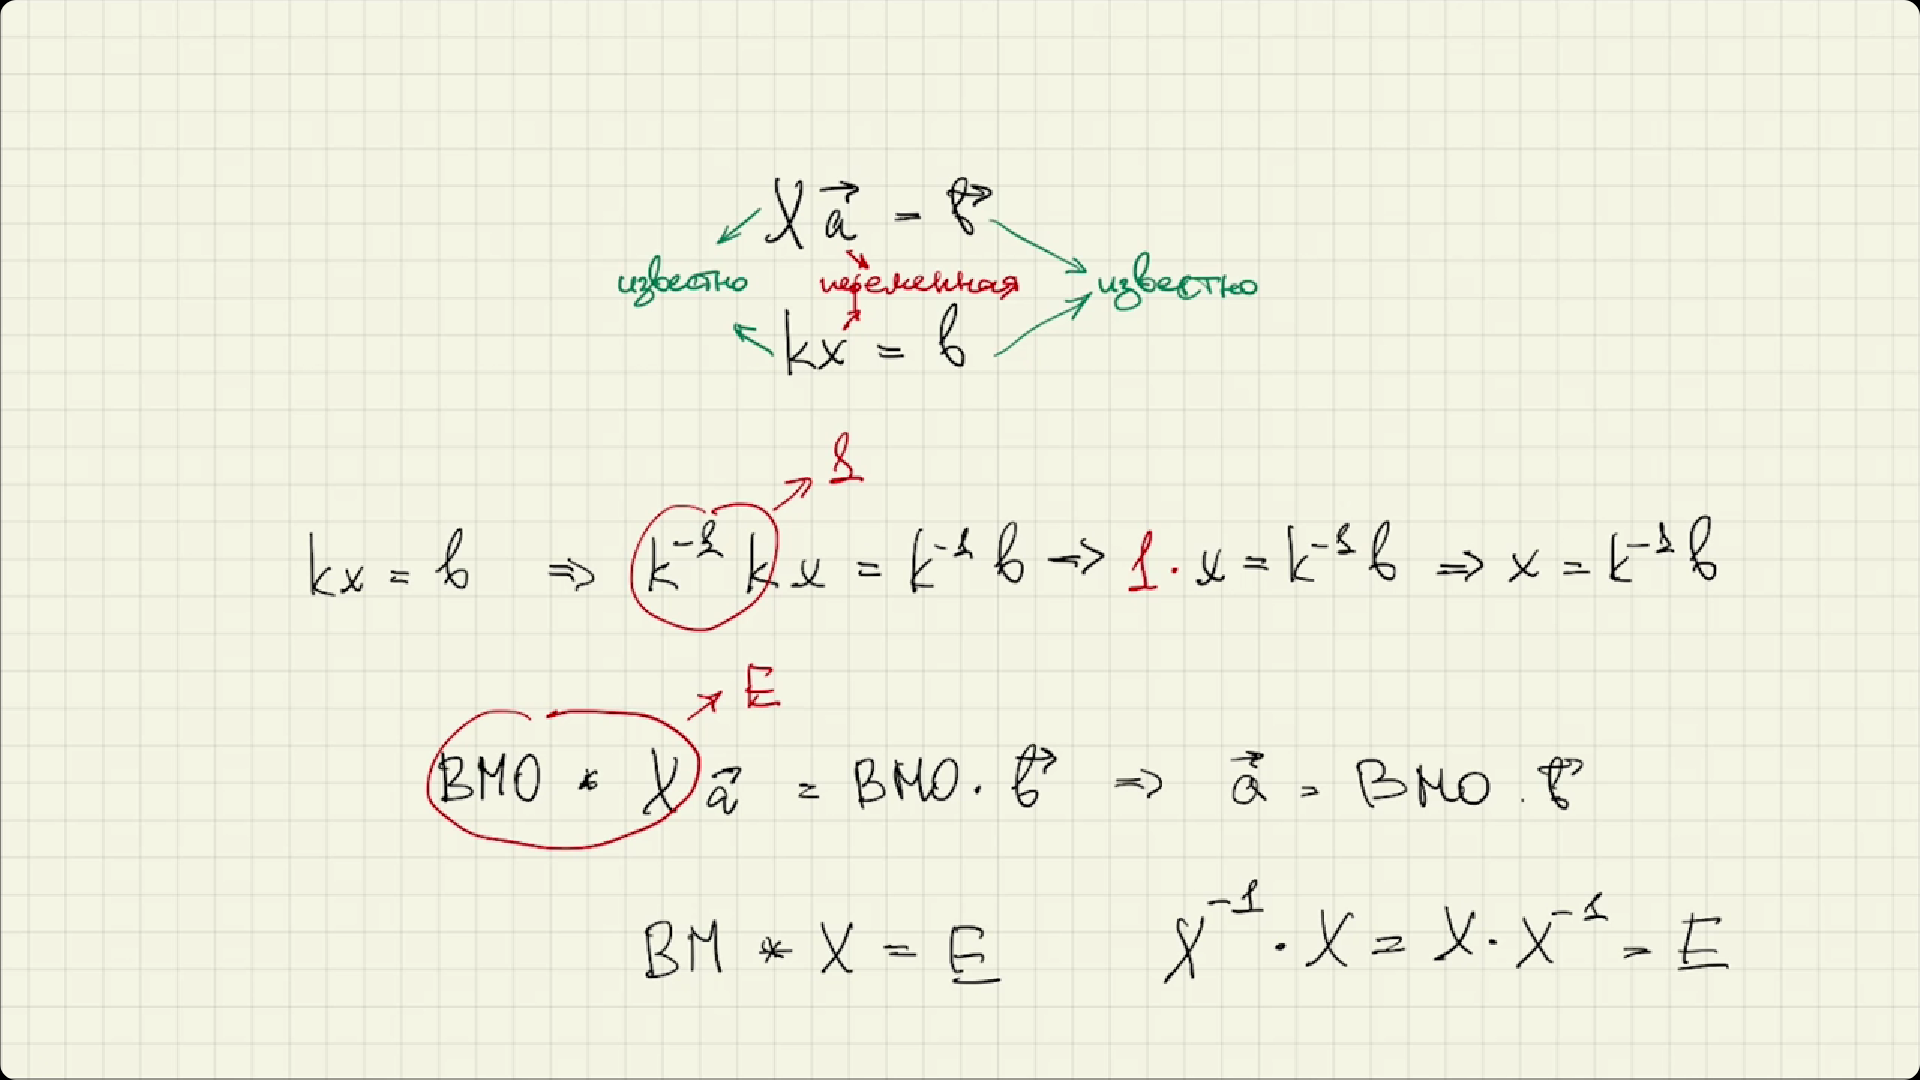 X a⃗ = b⃗
известно переменная известно
kx = b
1
kx = b ⇒ k⁻¹ k x = k⁻¹ b ⇒ 1 · x = k⁻¹ b ⇒ x = k⁻¹ b
E
ВМО * X a⃗ = ВМО · b⃗ ⇒ a⃗ = ВМО · b⃗
ВМ * X = E X⁻¹ · X = X · X⁻¹ = E